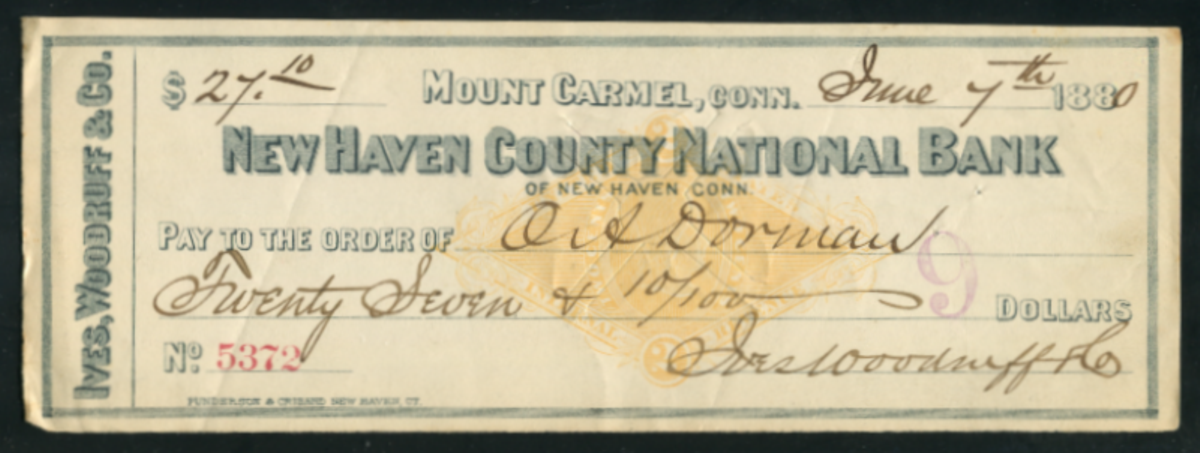 IVES, WOODRUFF & CO.
$ 27.10 MOUNT CARMEL, CONN. June 7th 1880
NEW HAVEN COUNTY NATIONAL BANK
OF NEW HAVEN CONN.
PAY TO THE ORDER OF O A Dorman
9
Twenty Seven & 10/100 DOLLARS
No. 5372
Ives Woodruff & Co
PUNDERSON & CRISAND NEW HAVEN, CT.